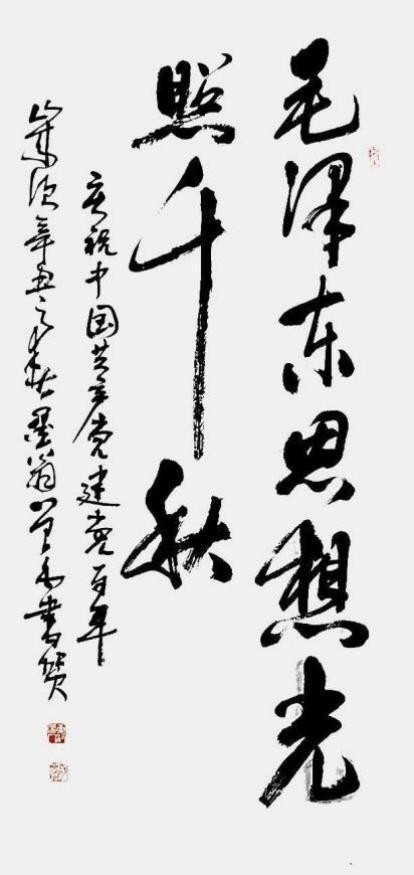 毛泽东思想光
照千秋
庆祝中国共产党建党百年
岁次辛丑之秋墨翁
书贺